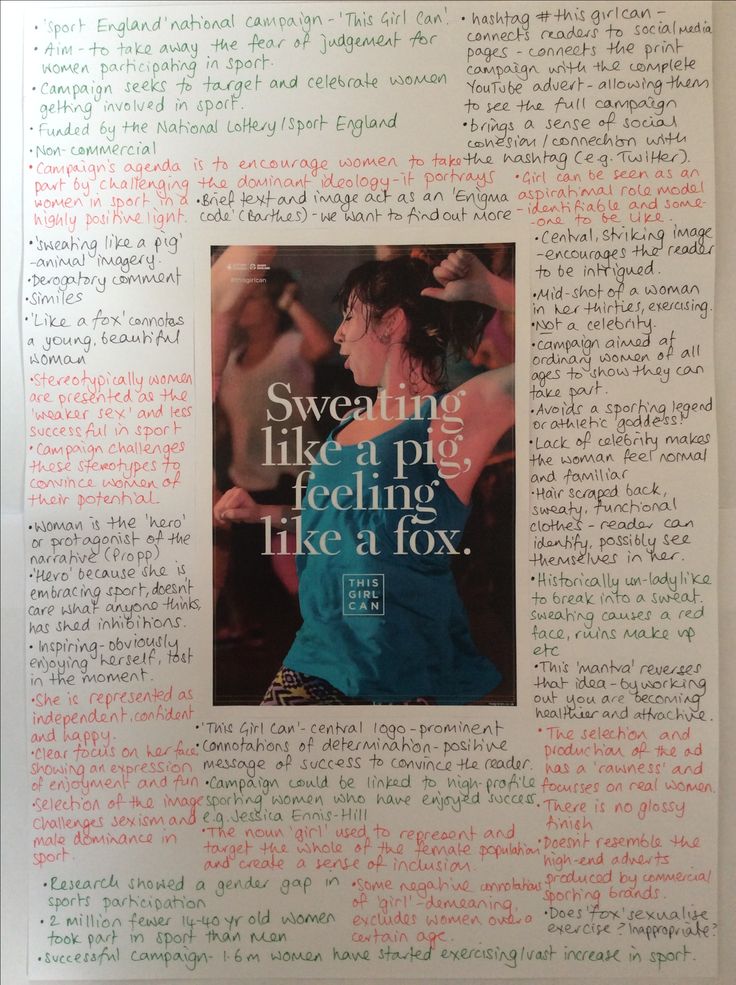 • 'Sport England' national campaign - 'This Girl Can'.
• Aim - to take away the fear of judgement for
women participating in sport.
• Campaign seeks to target and celebrate women
getting involved in sport.
• Funded by the National Lottery/Sport England
• Non-commercial
• hashtag # thisgirlcan -
connects readers to social media
pages - connects the print
campaign with the complete
YouTube advert - allowing them
to see the full campaign
• brings a sense of social
cohesion/connection with
the hashtag (e.g. Twitter).
• Campaign's agenda is to encourage women to take
part by challenging the dominant ideology - it portrays
women in sport in a
highly positive light.
• Brief text and image act as an 'Enigma
code' (Barthes) - we want to find out more
• Girl can be seen as an
aspirational role model
- identifiable and some-
-one to be like.
• 'sweating like a pig'
- animal imagery.
• Derogatory comment
• Similes
• 'Like a fox' connotes
a young, beautiful
woman
• Stereotypically women
are presented as the
'weaker sex' and less
successful in sport
• Campaign challenges
these stereotypes to
convince women of
their potential
• Woman is the 'hero'
or protagonist of the
narrative (Propp)
• 'Hero' because she is
embracing sport, doesn't
care what anyone thinks,
has shed inhibitions.
• Inspiring - obviously
enjoying herself, lost
in the moment.
• She is represented as
independent, confident
and happy.
• Clear focus on her face
showing an expression
of enjoyment and fun
• Selection of the image
challenges sexism and
male dominance in
sport.
#thisgirlcan
Sweating
like a pig,
feeling
like a fox.
THIS
GIRL
CAN
• Central, striking image
- encourages the reader
to be intrigued.
• Mid-shot of a woman
in her thirties, exercising.
• Not a celebrity.
• Campaign aimed at
ordinary women of all
ages to show they can
take part.
• Avoids a sporting legend
or athletic 'goddess'.
• Lack of celebrity makes
the woman feel normal
and familiar
• Hair scraped back,
sweaty, functional
clothes - reader can
identify, possibly see
themselves in her.
• Historically un-ladylike
to break into a sweat.
sweating causes a red
face, ruins make up
etc
• This 'mantra' reverses
that idea - by working
out you are becoming
healthier and attractive.
• The selection and
production of the ad
has a 'rawness' and
focusses on real women.
• There is no glossy
finish
• Doesn't resemble the
high-end adverts
produced by commercial
sporting brands.
• Does 'fox' sexualise
exercise? Inappropriate?
• 'This Girl Can' - central logo - prominent
connotations of determination - positive
message of success to convince the reader.
• Campaign could be linked to high-profile
sporting women who have enjoyed success
e.g. Jessica Ennis-Hill
• The noun 'girl' used to represent and
target the whole of the female population
and create a sense of inclusion.
• Some negative connotations
of 'girl' - demeaning,
excludes women over a
certain age.
• Research showed a gender gap in
sports participation
• 2 million fewer 14-40 yr old women
took part in sport than men
• Successful campaign - 1.6m women have started exercising/vast increase in sport.